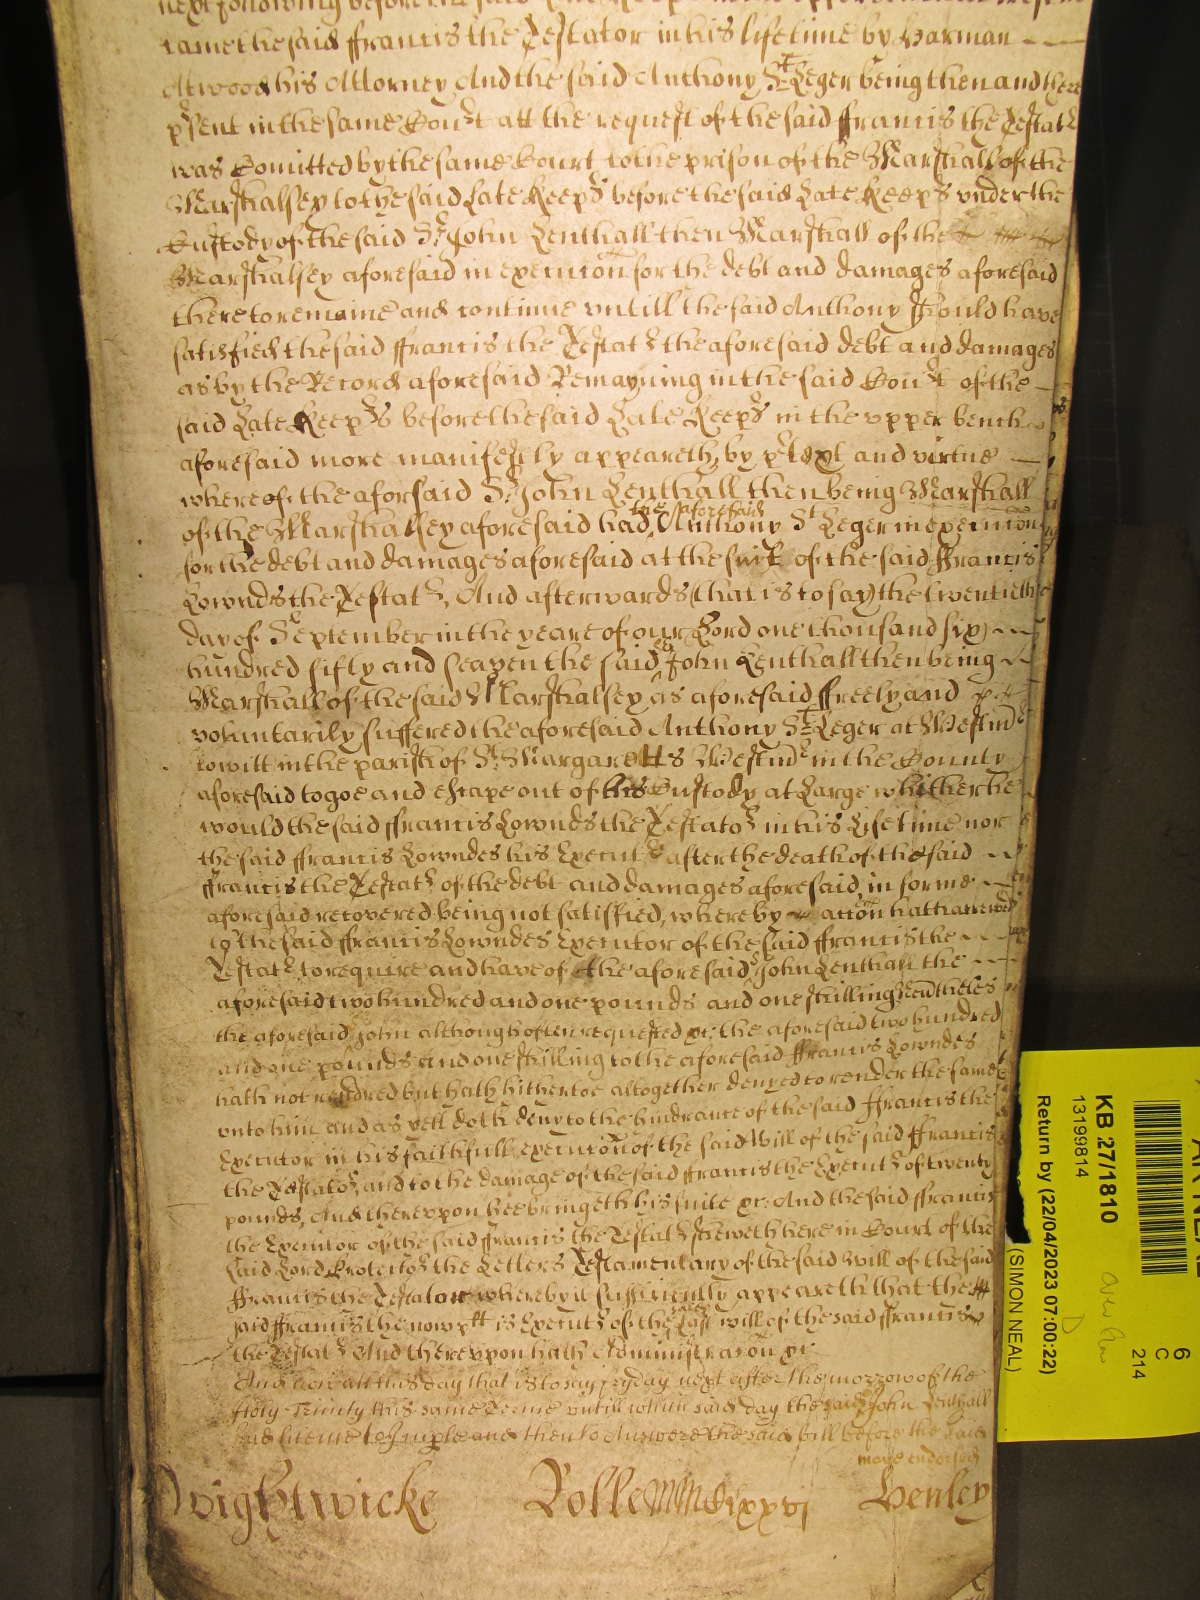 next following before the said
came the said ffrancis the Testator in his life time by Harman
Atwood his Attorney And the said Anthony St Leger being then and there
psent in the same Court att the request of the said ffrancis the Testatr
was Comitted by the same Court to the prison of the Marshall of the
Marshalsey to the said Late Keeprs before the said Late Keeprs under the
Custody of the said Sr John Lenthall then Marshall of the
Marshalsey aforesaid in execucon for the debt and damages aforesaid
there to remaine and continue untill the said Anthony should have
satisfied the said ffrancis the Testatr the aforesaid debt and damages
as by the Record aforesaid Remayning in the said Court of the
said Late Keeprs before the said Late Keeprs in the upper bench
aforesaid more manifestly appeareth, by ptext and virtue
whereof the aforsaid Sr John Lenthall then being Marshall
of the Marshalsey aforesaid had the aforesaid Anthony St Leger in execucon
for the debt and damages aforesaid at the suit of the said ffrancis
Lownds the Testatr, And afterwards (that is to say) the twentieth
day of September in the yeare of our Lord one thousand six
hundred fifty and seaven the said Sr John Lenthall then being
Marshall of the said Marshalsey as aforesaid ffreely and
voluntarily suffered the aforesaid Anthony St Leger at Westmr
to witt in the parish of St Margaretts Westmr in the County
aforesaid to goe and escape out of his Custody at Large whither he
would the said ffrancis Lownds the Testator in his Life time nor
the said ffrancis Lowndes his Executr after the death of the said
ffrancis the Testatr of the debt and damages aforesaid, in forme
aforesaid recovered being not satisfied, whereby accon hath accrewed
to the said ffrancis Lowndes Executor of the said ffrancis the
Testatr to require and have of the aforesaid Sr John Lenthall the
aforesaid two hundred and one pounds and one shilling Neavtheles
the aforesaid John although often requested &c the aforesaid two hundred
and one pounds and one shilling to the aforesaid ffrancis Lowndes
hath not rendred but hath hithertoe altogether denyed to render the same
unto him and as yett doth deny to the hindrance of the said ffrancis the
Executor in his faithfull execucon of the said Will of the said ffrancis
the Testator, and to the damage of the said ffrancis the Executr of twenty
pounds, And thereupon hee bringeth his suite &c And the said ffrancis
the Executor of the said ffrancis the Testatr sheweth here in Court of the
said Lord Protector the Letters Testamentary of the said Will of the said
ffrancis the Testator whereby it sufficiently appeareth that the
said ffrancis the now plt is Executr of the Last will of the said ffrancis
the Testatr And thereupon hath Administracon &c
And now att this day that is to say fryday next after the morrow of the
Holy Trinity this same Terme untill which said day the said Sr John Lenthall
had licence to Imple and then to Answere the said bill before the said
more endorsed
Dwightwicke Rolle MMMdixxvj Henley
AR NEAL
KB 27/1810
13199814
Return by (22/04/2023 07:00:22)
(SIMON NEAL)
6
C
214
D